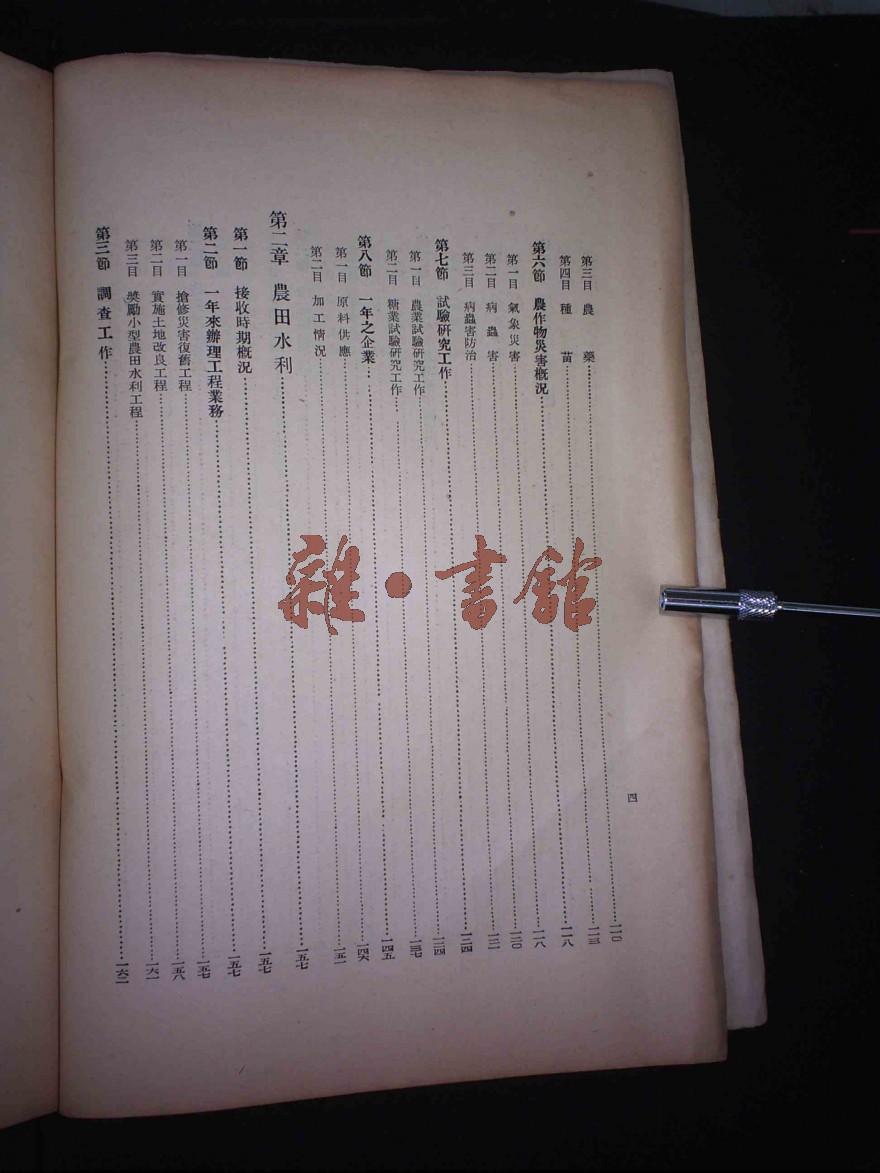 四
第三目 農藥……一一〇
第四目 種苗……一一三
第六節 農作物災害概況……一一八
第一目 氣象災害……一一八
第二目 病蟲害……一二〇
第三目 病蟲害防治……一二一
第七節 試驗研究工作……一二四
第一目 農業試驗研究工作……一二四
第二目 糖業試驗研究工作……一三七
第八節 一年之企業……一四五
第一目 原料供應……一四六
第二目 加工情況……一五一
第二章 農田水利……一五七
第一節 接收時期概況……一五七
第二節 一年來辦理工程業務……一五七
第一目 搶修災害復舊工程……一五七
第二目 實施土地改良工程……一五八
第三目 獎勵小型農田水利工程……一六一
第三節 調查工作……一六二
雜·書館